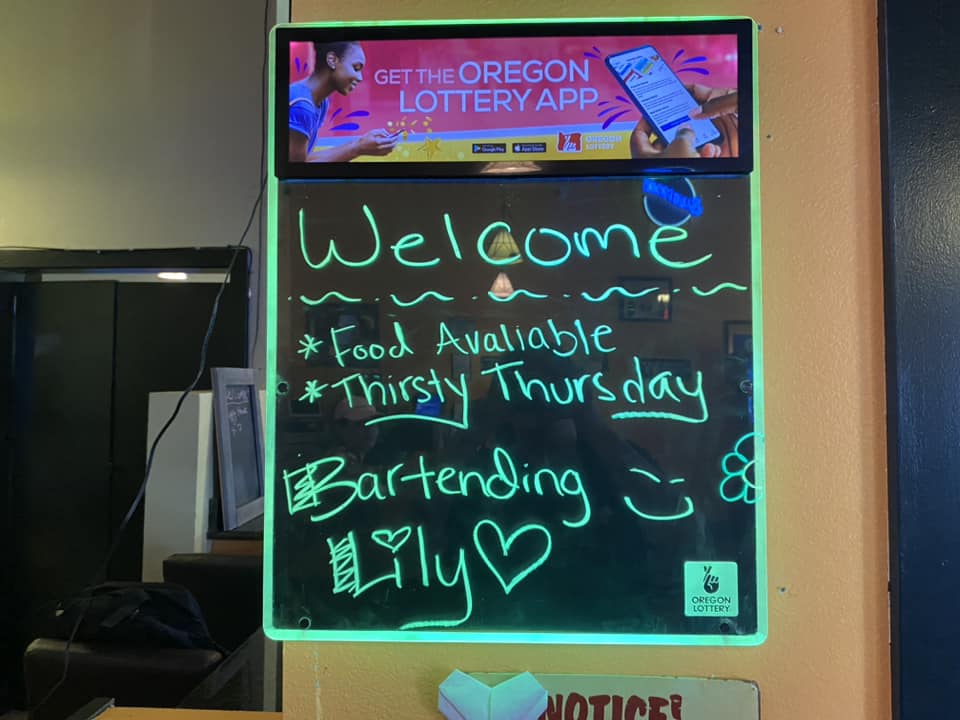 GET THE OREGON
LOTTERY APP
Google Play
App Store
OREGON
LOTTERY
Welcome
* Food Avaliable
* Thirsty Thursday
Bartending
Lily
OREGON
LOTTERY
NOTICE!